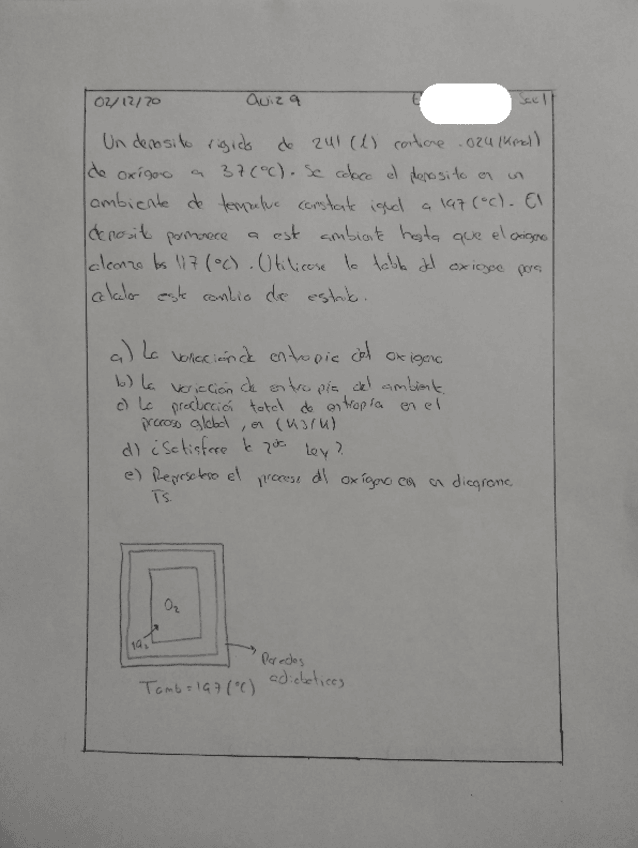 02/12/20 Quiz 9 Sec 1
Un deposito rigido de 241 (l) contiene .024 (Kmol)
de oxígeno a 37 (°C). Se coloca el deposito en un
ambiente de temperatura constante igual a 197 (°C). El
deposito permanece a este ambiente hasta que el oxigeno
alcanza los 117 (°C). Utilicese la tabla del oxigeno para
calcular este cambio de estado.
a) La variación de entropia del oxigeno
b) La variación de entropia del ambiente
c) La producción total de entropía en el
proceso global, en (KJ/K)
d) ¿Satisface la 2da Ley?
e) Represente el proceso del oxígeno en un diagrama
Ts.
O2
Paredes
adiabaticas
Tamb = 197 (°C)